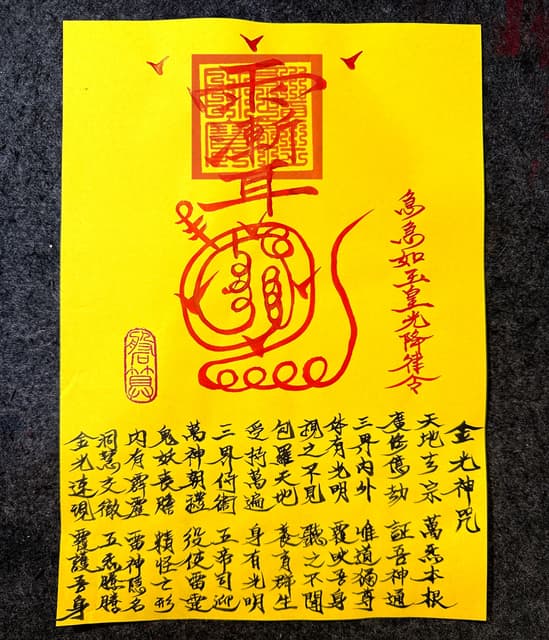 雨漸耳
急急如玉皇光降律令
金光神咒
天地玄宗 萬炁本根
廣修億劫 証吾神通
三界內外 惟道獨尊
体有光明 覆映吾身
視之不見 聽之不聞
包羅天地 養育群生
受持萬遍 身有光明
三界侍衛 五帝司迎
萬神朝禮 役使雷霆
鬼妖喪膽 精怪亡形
內有霹靂 雷神隱名
洞慧交徹 五炁騰騰
金光速現 覆護吾身